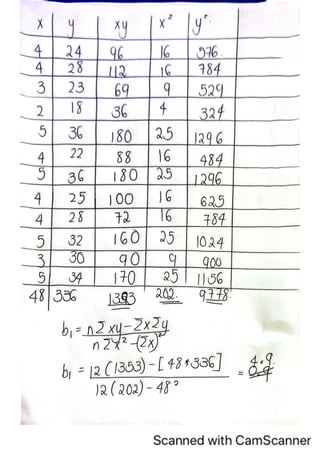 x y xy x² y².
4 24 96 16 576.
4 28 112 16 784
3 23 69 9 529
2 18 36 4 324
5 36 180 25 1296
4 22 88 16 484
5 36 180 25 1296
4 25 100 16 625
4 28 72 16 784
5 32 160 25 1024
3 30 90 9 900
5 34 170 25 1156
48 336 202. 9778
b₁ = nΣxy - ΣxΣy
nΣx² - (Σx)²
b₁ = 12(1353) - [48*336] = 4.9
12(202) - 48²
Scanned with CamScanner